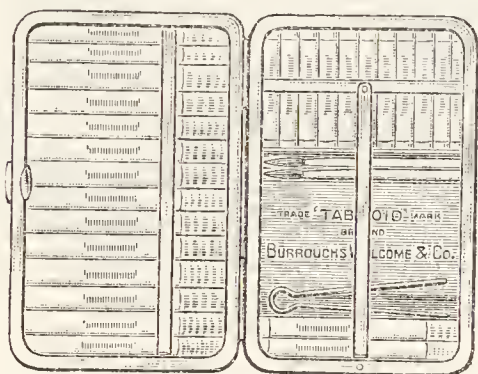 TRADE 'TAB OID' MARK
BR ND
BURROUGHS W LCOME & Co.